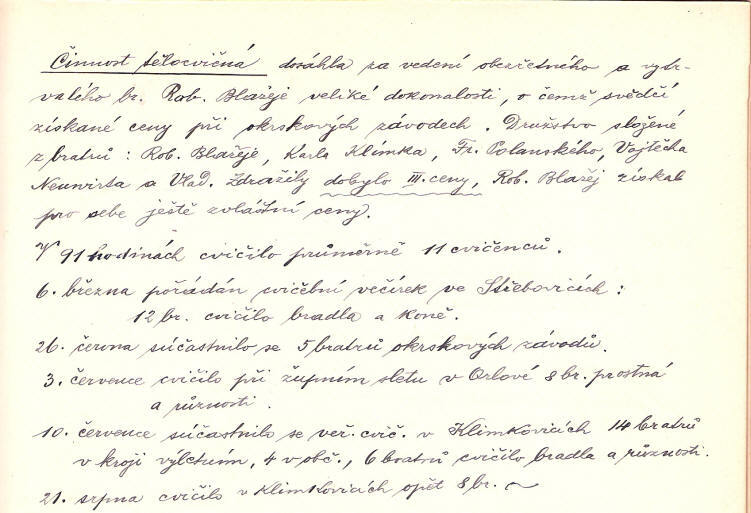 Činnost tělocvičná dosáhla za vedení obezřetného a vytr-
valého br. Rob. Blažeje veliké dokonalosti, o čemž svědčí
získané ceny při okrskových závodech. Družstvo složené
z bratrů: Rob. Blažeje, Karla Klimka, Fr. Polanského, Vojtěcha
Neuwirta a Vlad. Zdražily dobylo III. ceny, Rob. Blažej získal
pro sebe ještě zvláštní ceny.
V 91 hodinách cvičilo průměrně 11 cvičenců.
6. března pořádán cvičební večírek ve Střebovicích:
12 br. cvičilo bradla a koně.
26. června súčastnilo se 5 bratrů okrskových závodů.
3. července cvičilo při župním sletu v Orlové 8 br. prostná
a různosti.
10. července súčastnilo se veř. cvič. v Klimkovicích 14 bratrů
v kroji výletním, 4 v obč., 6 bratrů cvičilo bradla a různosti.
21. srpna cvičilo v Klimkovicích opět 8 br.